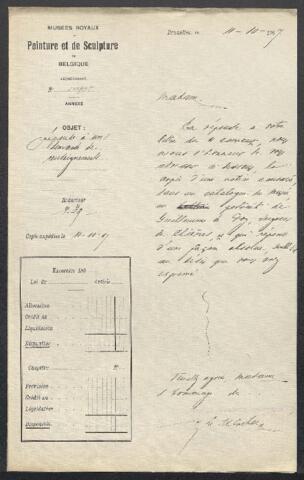 MUSÉES ROYAUX
DE
Peinture et de Sculpture
DE
BELGIQUE
N°
ANNEXE
OBJET:
réponse à une
demande de
renseignements.
Rédacteur
Copie expédiée le 11-10-07
EXERCICE 190
Loi du articles
Allocation
Crédit au
Liquidation
Disponible
Chapitre
Prévision
Crédit au
Liquidation
Disponible
Bruxelles, le 11-10-1907.
Madame,
En réponse à votre
lettre du courant, nous
avons l'honneur de vous
adresser ci-dessous la
copie d'une notice consacrée
dans un catalogue du musée
au portrait de
Guillaume
de et qui répond
d'une façon absolue
au désir que vous nous
exprimez
Veuillez agréer Madame
l'hommage de